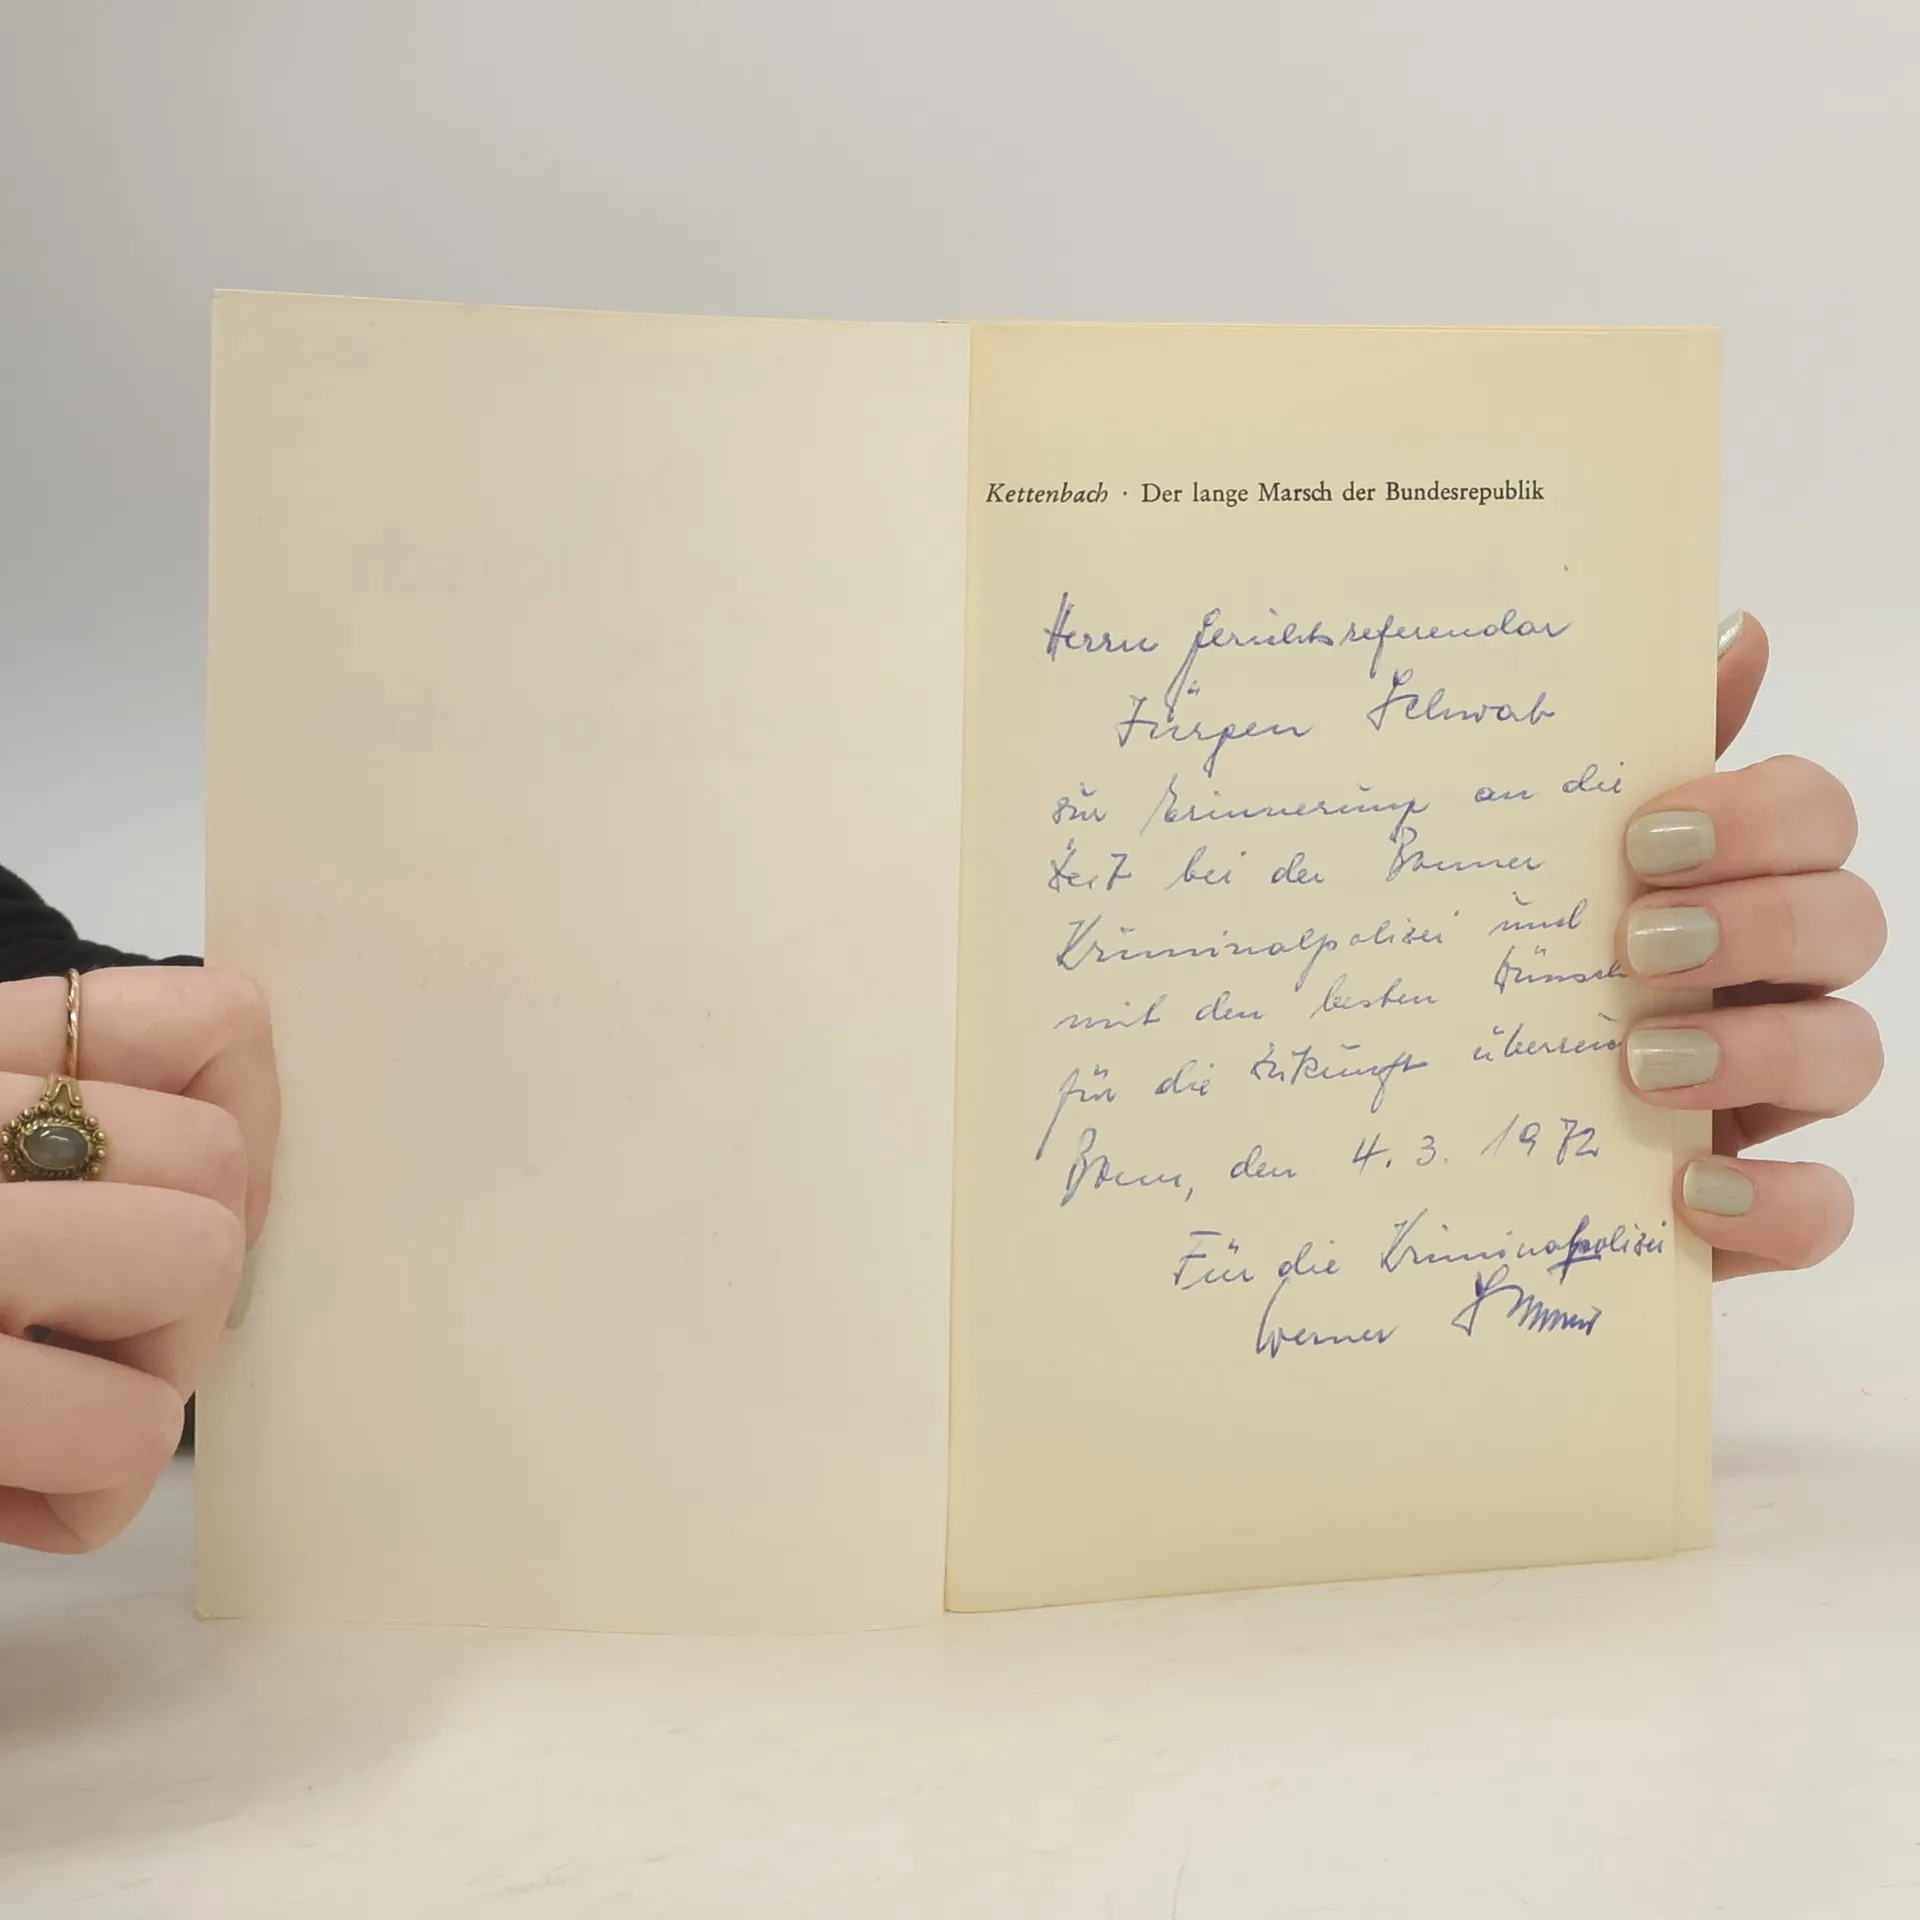 Kettenbach · Der lange Marsch der Bundesrepublik
Herrn Gerichtsreferendar
Jürgen Schwab
zur Erinnerung an die
Zeit bei der Bonner
Kriminalpolizei und
mit den besten Wünsch
für die Zukunft überreic
Bonn, den 4. 3. 1972
Für die Kriminalpolizei
Werner